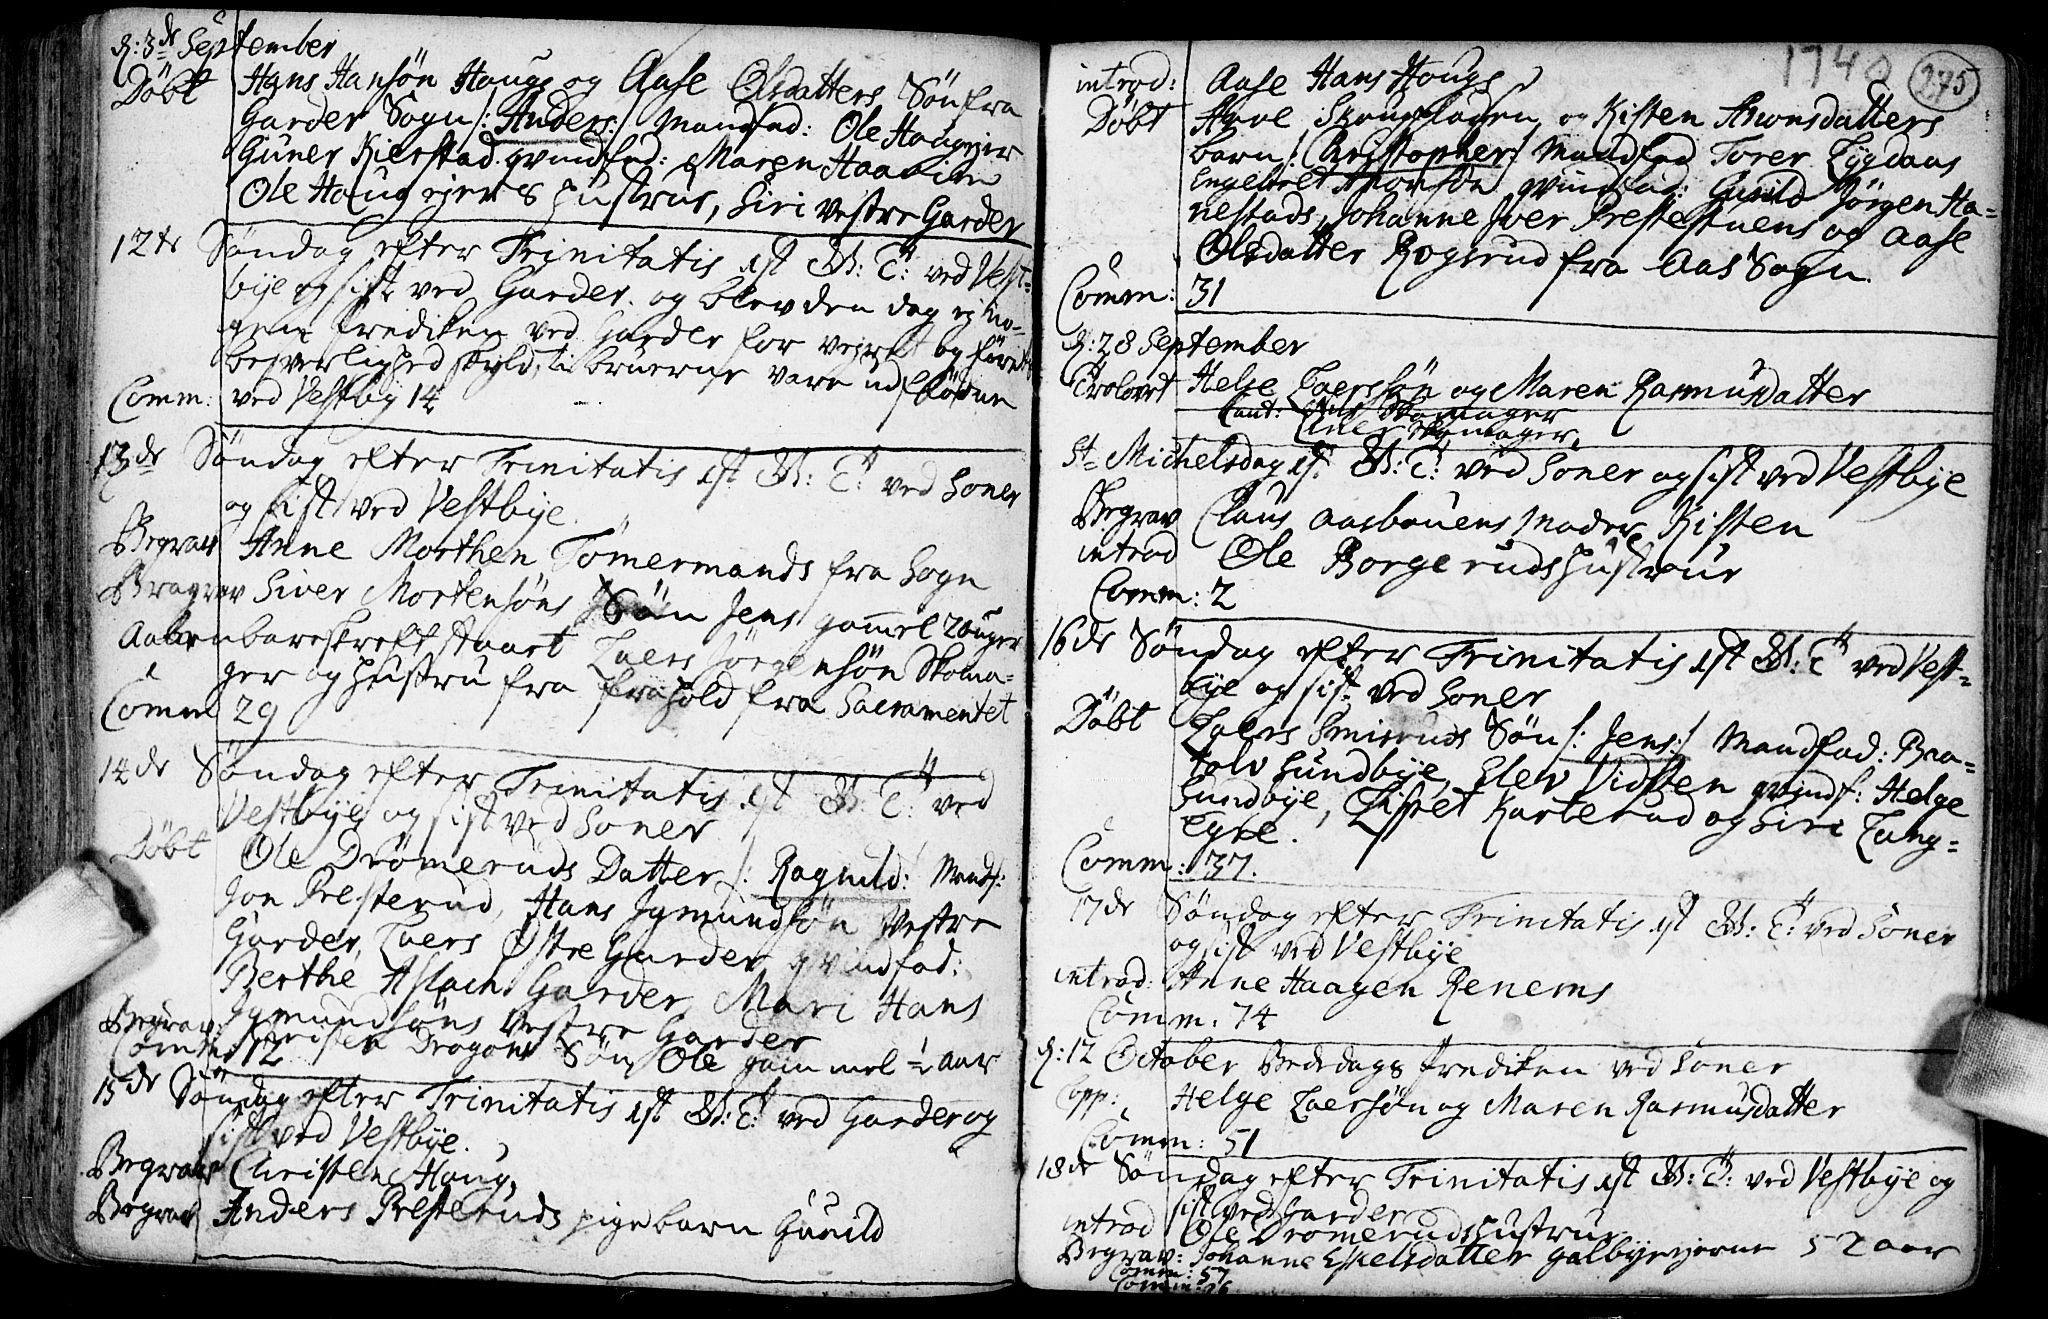 d: 3de September
Døbt Hans Hansøn Haugs og Aase Olsdatters Søn fra
Garder Sogn /: Anders :/ Mandfad: Ole Haugeier
Guner Kierstad qvindfad: Maren Haavien
Ole Haugeiers Hustrue, Siri Vestre Garder
12te Søndag efter Trinitatis 1st ved Vest-
bye og sist ved Garder. og blev den dag ej no-
gen Prediken ved Garder for vejret og føretts
besverlighed skyld, ti bruerne vare udfløedne
Comm: ved Vestby 14
13de Søndag efter Trinitatis 1st ved Soner
og sist ved Vestbye.
Begrav Anne Morthen Tømermands fra Sogn
Begrav Siver Mortensøns Søn Jens gamel 20 uger
Aabenbare skrift staart Laers Jørgensøn Skoma-
ger og Hustru fra frahold fra Sacramentet
Comm 29
14de Søndag efter Trinitatis 1st ved
Vestbye og sist ved Soner
Døbt Ole Drømeruds Datter /: Ragnild :/ Mandf:
Jon Presterud, Hans Jgmundsøn Vestre
Garder, Laers Østre Garder qvindfad:
Berthe Aslach Garder, Mari Hans
Jgmundsøns Vestre Garder
Begrav: Christen Dragons Søn Ole gammel 1/2 aar
Comm 12
15de Søndag efter Trinitatis 1st ved Garder og
sist ved Vestbye.
Begrav Christen Haug,
Begrav Anders Presteruds pigebarn Gunild
1740 275
introd: Aase Hans Haugs
Døbt Arve Skougsladen og Kisten Arvonsdatters
barn /: Christopher :/ Mandfad Torer Lygdaas
Engebret qvindfad: Gunild Jørgen Ha-
nestads, Johanne Iver Prestestuens og Aase
Olsdatter Rogerud fra Aas Sogn.
Comm: 31
d: 28 September
Trolovet Helge Laersøn og Maren Rasmusdatter
Caut: Skomager
Skomager,
St Michelsdag 1st ved Soner og sist ved Vestbye
Begrav Claus Aasbauens Moder Kisten
introd Ole Borgeruds Hustrue
Comm: 2
16de Søndag efter Trinitatis 1st ved Vest-
bye og sist ved Soner
Døbt Laers Smieruds Søn /: Jens :/ Mandfad: Bra-
tolv Sundbye, Elev Vidsten qvindf: Helge
Sundbye, Lisbet Karterud og Siri Lang-
Egre.
Comm: 37.
17de Søndag efter Trinitatis 1st ved Soner
og sist ved Vestbye
introd: Anne Haagen Renems
Comm: 74
d: 12 October Bededags Prediken ved Soner
Copp: Helge Laersøn og Maren Rasmusdatter
Comm: 51
18de Søndag efter Trinitatis 1st ved Vestbye og
sist ved Garder
introd Ole Drømeruds Hustrue
Begrav: Johanne Eskelsdatter galbyeejerne 52 aar
Comm: 57
Comm: 26